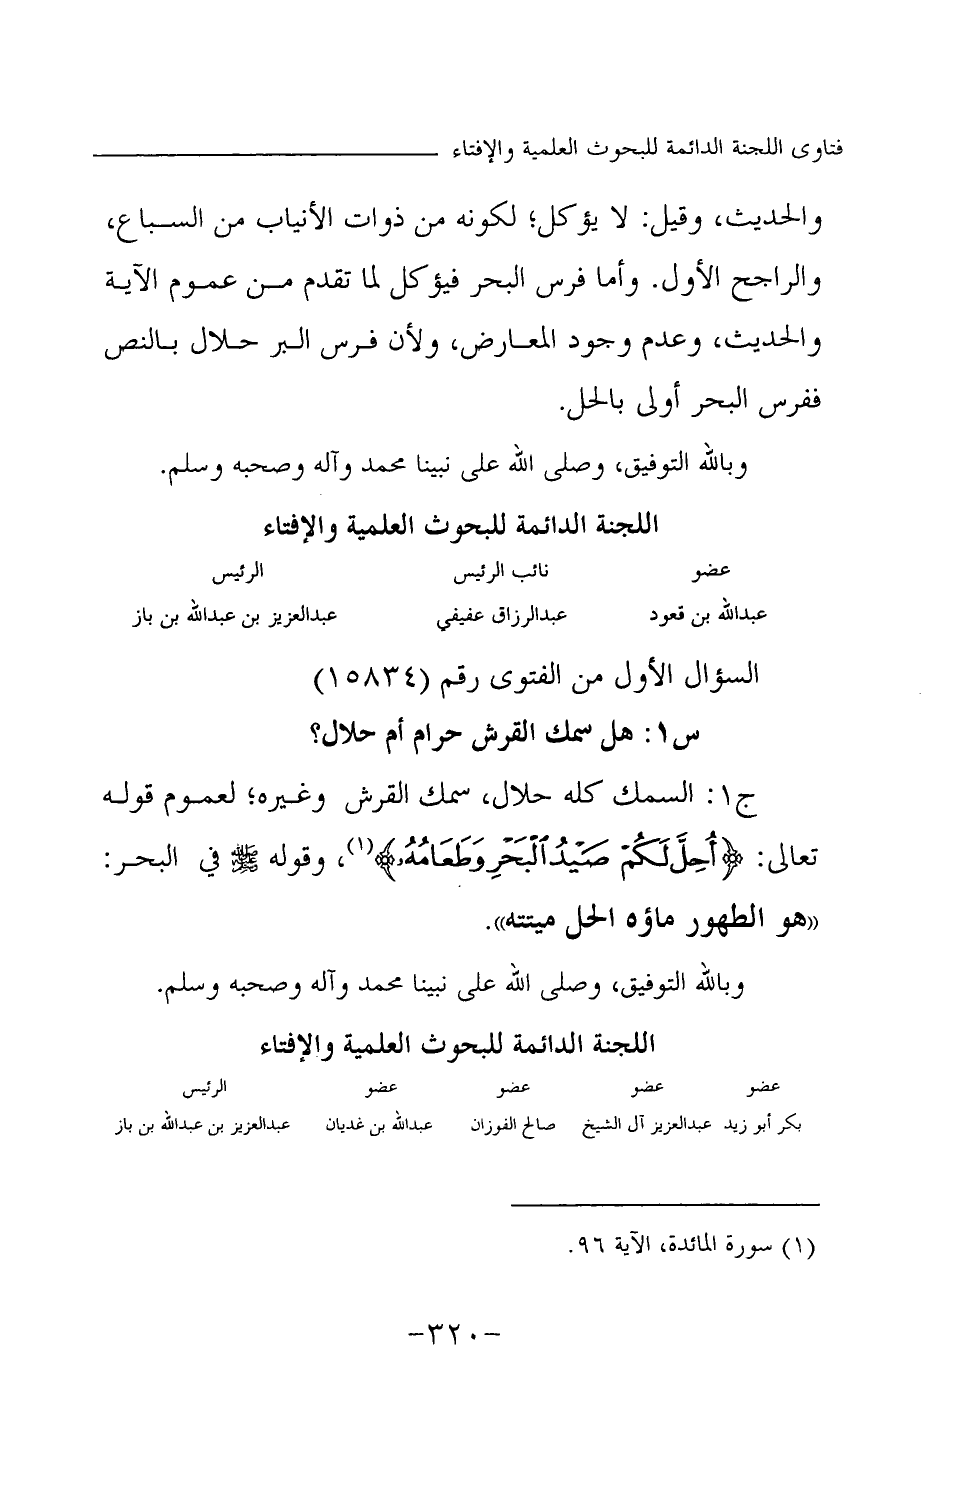 فتاوى اللجنة الدائمة للبحوث العلمية والإفتاء
والحديث، وقيل: لا يؤكل؛ لكونه من ذوات الأنياب من السباع،
والراجح الأول. وأما فرس البحر فيؤكل لما تقدم من عموم الآية
والحديث، وعدم وجود المعارض، ولأن فرس البر حلال بالنص
ففرس البحر أولى بالحل.
وبالله التوفيق، وصلى الله على نبينا محمد وآله وصحبه وسلم.
اللجنة الدائمة للبحوث العلمية والإفتاء
عضو نائب الرئيس الرئيس
عبدالله بن قعود عبدالرزاق عفيفي عبدالعزيز بن عبدالله بن باز
السؤال الأول من الفتوى رقم (١٥٨٣٤)
س١: هل سمك القرش حرام أم حلال؟
ج١: السمك كله حلال، سمك القرش وغيره؛ لعموم قوله
تعالى: ﴿أُحِلَّ لَكُمْ صَيْدُ ٱلْبَحْرِ وَطَعَامُهُۥ﴾(١)، وقوله ﷺ في البحر:
«هو الطهور ماؤه الحل ميتته».
وبالله التوفيق، وصلى الله على نبينا محمد وآله وصحبه وسلم.
اللجنة الدائمة للبحوث العلمية والإفتاء
عضو عضو عضو عضو الرئيس
بكر أبو زيد عبدالعزيز آل الشيخ صالح الفوزان عبدالله بن غديان عبدالعزيز بن عبدالله بن باز
(١) سورة المائدة، الآية ٩٦.
-٣٢٠-